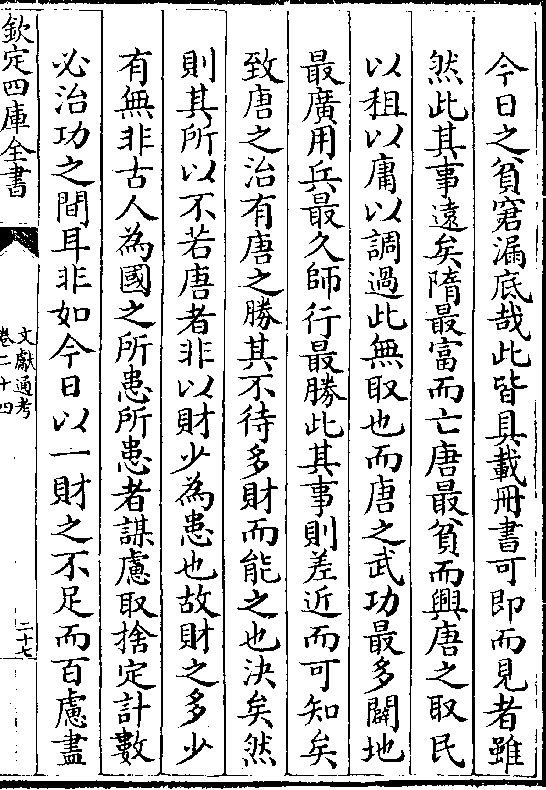 今日之貧窘漏底哉此皆具載冊書可即而見者雖
然此其事遠矣隋最富而亡唐最貧而興唐之取民
以租以庸以調過此無取也而唐之武功最多闢地
最廣用兵最久師行最勝此其事則差近而可知矣
致唐之治有唐之勝其不待多財而能之也決矣然
則其所以不若唐者非以財少為患也故財之多少
有無非古人為國之所患所患者謀慮取捨定計數
必治功之間耳非如今日以一財之不足而百慮盡
欽定四庫全書
文獻通考
卷二十四
二十七